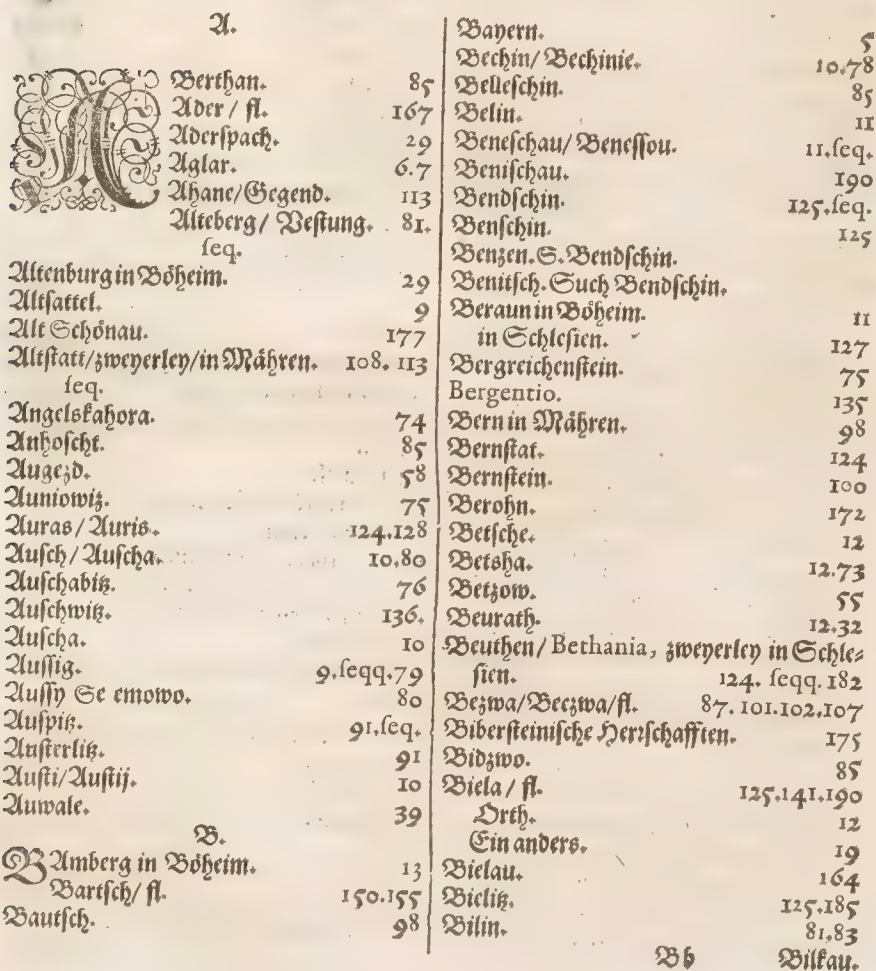 A.
ABerthan. 85
Ader / fl. 167
Aderspach. 29
Aglar. 6.7
Ahane/Gegend. 113
Alteberg/ Vestung. 81.
seq.
Altenburg in Böheim. 29
Altsattel. 9
Alt Schönau. 177
Altstatt/zweyerley/in Mähren. 108. 113
seq.
Angelskahora. 74
Anhoscht. 85
Augezd. 58
Auniowiz. 75
Auras/Auris. 124.128
Ausch/Auscha. 10.80
Auschabitz. 76
Auschwitz. 136.
Auscha. 10
Aussig. 9.seqq.79
Aussy Se emowo. 80
Auspitz. 91.seq.
Austerlitz. 91
Austi/Austij. 10
Auwale. 39
B.
BAmberg in Böheim. 13
Bartsch/ fl. 150.155
Bautsch. 98
Bayern. 5
Bechin/Bechinie. 10.78
Belleschin. 85
Belin. 11
Beneschau/Benessou. 11.seq.
Benischau. 190
Bendschin. 125.seq.
Benschin. 125
Benzen.S.Bendschin.
Benitsch.Such Bendschin.
Beraun in Böheim. 11
in Schlesien. 127
Bergreichenstein. 75
Bergentio. 135
Bern in Mähren. 98
Bernstat. 124
Bernstein. 100
Berohn. 172
Betsche. 12
Betsha. 12.73
Betzow. 55
Beurath. 12.32
Beuthen/Bethania, zweyerley in Schle⸗
sien. 124. seqq.182
Bezwa/Beczwa/fl. 87.101.102.107
Bibersteinische Herrschafften. 175
Bidzwo. 85
Biela / fl. 125.141.190
Orth. 12
Ein anders. 19
Bielau. 164
Bielitz. 125.185
Bilin. 81.83
Bb Bilkau.